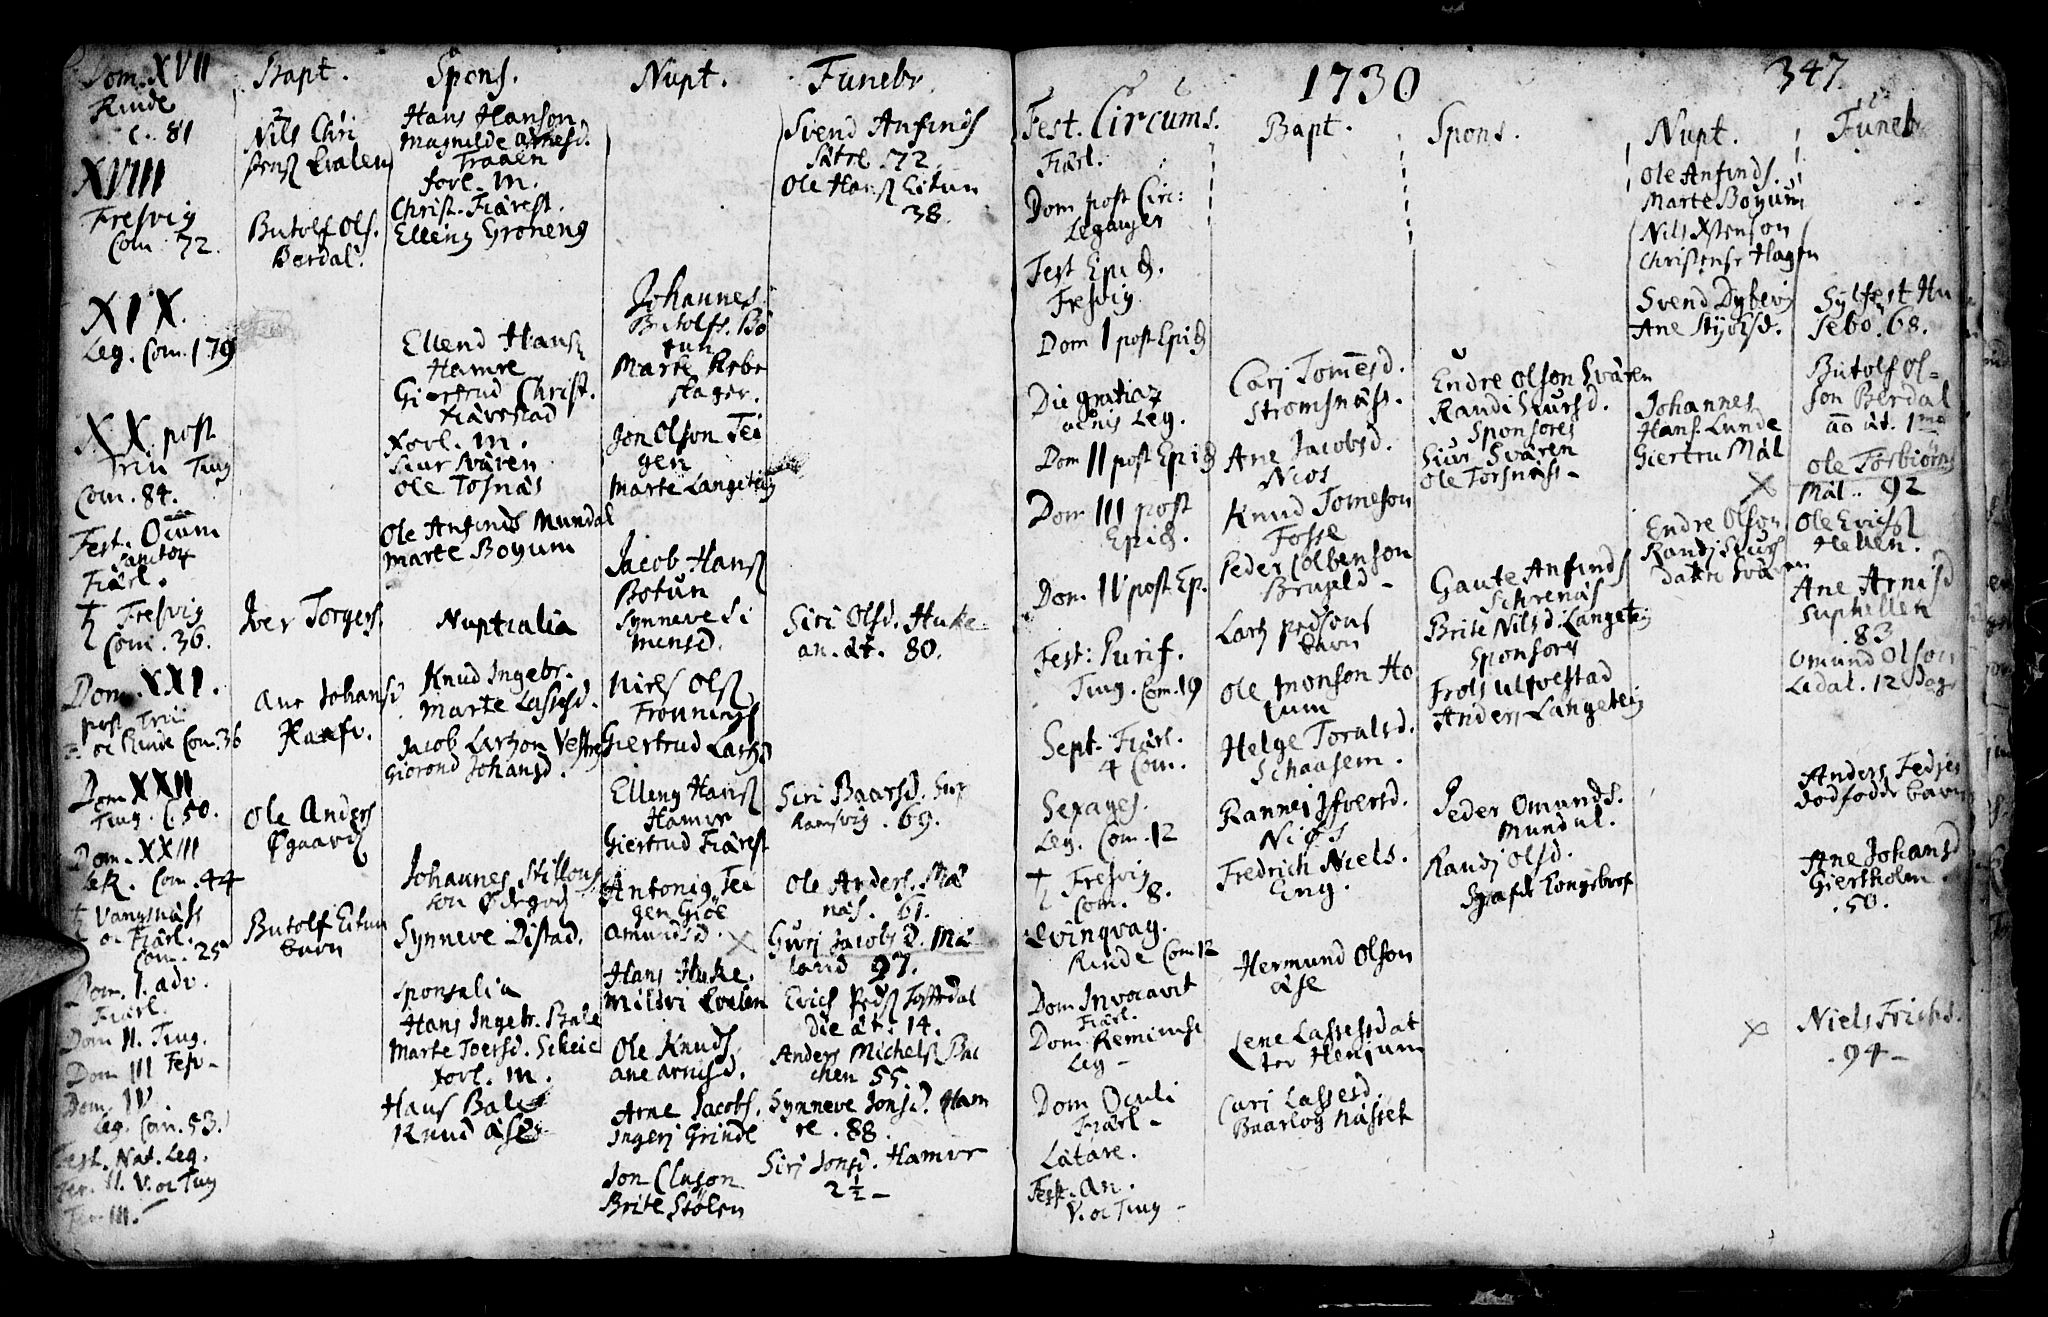 Dom. XVII
Rinde
c. 81
XVIII
Fresvig
Com. 72.
XIX.
Leg. Com. 179
XX. post
Trin Ting
Com. 84.
Fest. Om̄um
Sanctor
Fiärl.
Fresvig
Com. 36.
Dom. XXI.
post Trin
oc Rinde Com. 36
Dom XXII
Ting. C. 50.
Dom. XXIII
Com. 44
Vangsnäss
oc Fiärl.
Com. 25
Dom. I. adv.
Fiärl.
Dom II. Ting.
Dom III Fesv-
Dom. IV
Leg. Com. 53.
Fest. Nat. Leg.
Fer. II. V. oc Ting
Fer III.
Bapt.
Nils Chri
stens Evalen
Butolf Ols.
Berdal.
Iver Torgers.
Ane Johansd
Ole Anders
Butolf Eitun
barn
Spons.
Hans Hanson
Magnilde Arnesd.
Fraaen
forl. M.
Christ. Fiärest.
Elleng Groneng
Ellend Hans
Hamre
Giertrud Christ.
Fiärestad
Forl. M.
Siur Svären
Ole Tosnäs
Ole Anfinds Mundal
Marte Boyum
Nuptialia
Knud Ingebr.
Marte Lassesd.
Jacob Larson Vestre
Giorond Johansd.
Johannes
Synneve Distad.
Sponsalia
Hans Ingebr. Bale
Marte Joersd. Scheie
forl. M.
Hans Bale
Knud Ase
Nupt.
Johannes
Butolfs. Bo
tun
Marte Rebne
stager.
Jon Olson Tei
gen
Marte Langeteig
Jacob Hans
Botun
Synneve Si
mensd.
Niels Ols
Giertrud Larsd
Elleng Hans
Hamre
Giertrud Fiärest
Antonig Tei
gen Giöe
Amundsd.
Hans Huke.
Mildri Evalen
Ole Knuds
Ane Arnesd.
Arne Jacobs.
Ingerj Grinde
Jon Cluson
Brite Stölen
Funebr.
Svend Anfinds
Sätre 72.
Ole Hans Eitun
38.
Siri Olsd. Huke
an. ät. 80.
Siri Baarsd.
Ramsvig. 69.
Ole Anders. Mä
näs. 61.
Gurj Jacobsd. Mä
land 97.
Erich Peds
die ät. 14.
Anders Michels Bac
chen 55.
Synneve Jonsd. Ham
re. 88.
Sirj Jonsd. Hamre
2 1/2 -
1730
347
Fest. Circums.
Fiärl.
Dom post Circ:
Leganger
Fest Epiph.
Fresvig
Dom I post Epiph
Die gratiar
Leg.
Dom II post Epiph
Dom III post
Epiph.
Dom. IV post Ep.
Fest: Purif.
Ting. Com. 19
Sept. Fiärl.
4 Com.
Sexages.
Leg. Com. 12
Fresvig
Com. 8.
Qvinqvag.
Rinde Com 12
Dom Invocavit
Fiärl.
Dom Reminisc
Leg -
Dom Oculi
Fiärl -
Lätare.
Fest. An.
V. oc Ting -
Bapt.
Carj Tom̄esd.
Stromsnäss.
Ane Jacobsd.
Nios
Knud Tomeson
Fosse
Peder Colbenson
Lars Pedsons
barn
Ole Monson Ho
lum
Helge Toralsd.
Schaasem.
Rannej Ifversd.
Niøs
Fredrich Niels.
Eng.
Hermund Olson
Ase
Lene Lassesdat
ter Henjum
Carj Lassesd.
Baarlog Nässet
Spons.
Endre Olson Svären
Randi Siursd.
Sponsores
Siur Svären
Ole Torsnäss -
Gaute Anfinds
Schrenäs
Brite Nilsd. Langeteig
Sponsores
Frols Ulvestad
Anders Langeteig
Peder Omunds.
Mundal.
Randj Olsd.
Nupt.
Ole Anfinds.
Marte Boyum
Nils Xstenson
Christense Hagen
Svend Dybevig
Ane Styrsd.
Johannes
Hans. Lunde
Giertru Mäl
Endre Olson
Randj Siurs
datter Svären
Funebr
Sylfest Hu
sebo. 68.
Butolf Ol=
son Berdal
ao ät. 1mo
Ole Torbiörns
Mäl.. 92
Ole Erichs
Hellen.
Ane Arnesd
Suphellen
.83
Omund Olson
Ledal. 12 dage
Anders Fedjes
dodfødde barn
Ane Johansd
Giertholen
.50.
Niels Frichs.
.94-